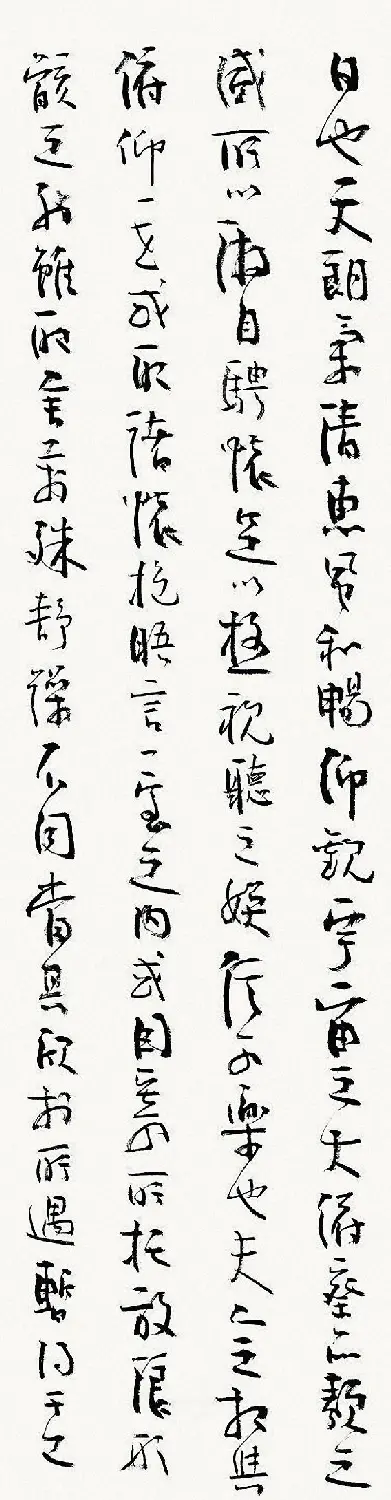 日也天朗氣清惠風和暢仰觀宇宙之大俯察品類之
盛所以遊目騁懷足以極視聽之娛信可樂也夫人之相與
俯仰一世或取諸懷抱晤言一室之內或因寄所托放浪形
骸之外雖取舍萬殊靜躁不同當其欣於所遇暫得於己